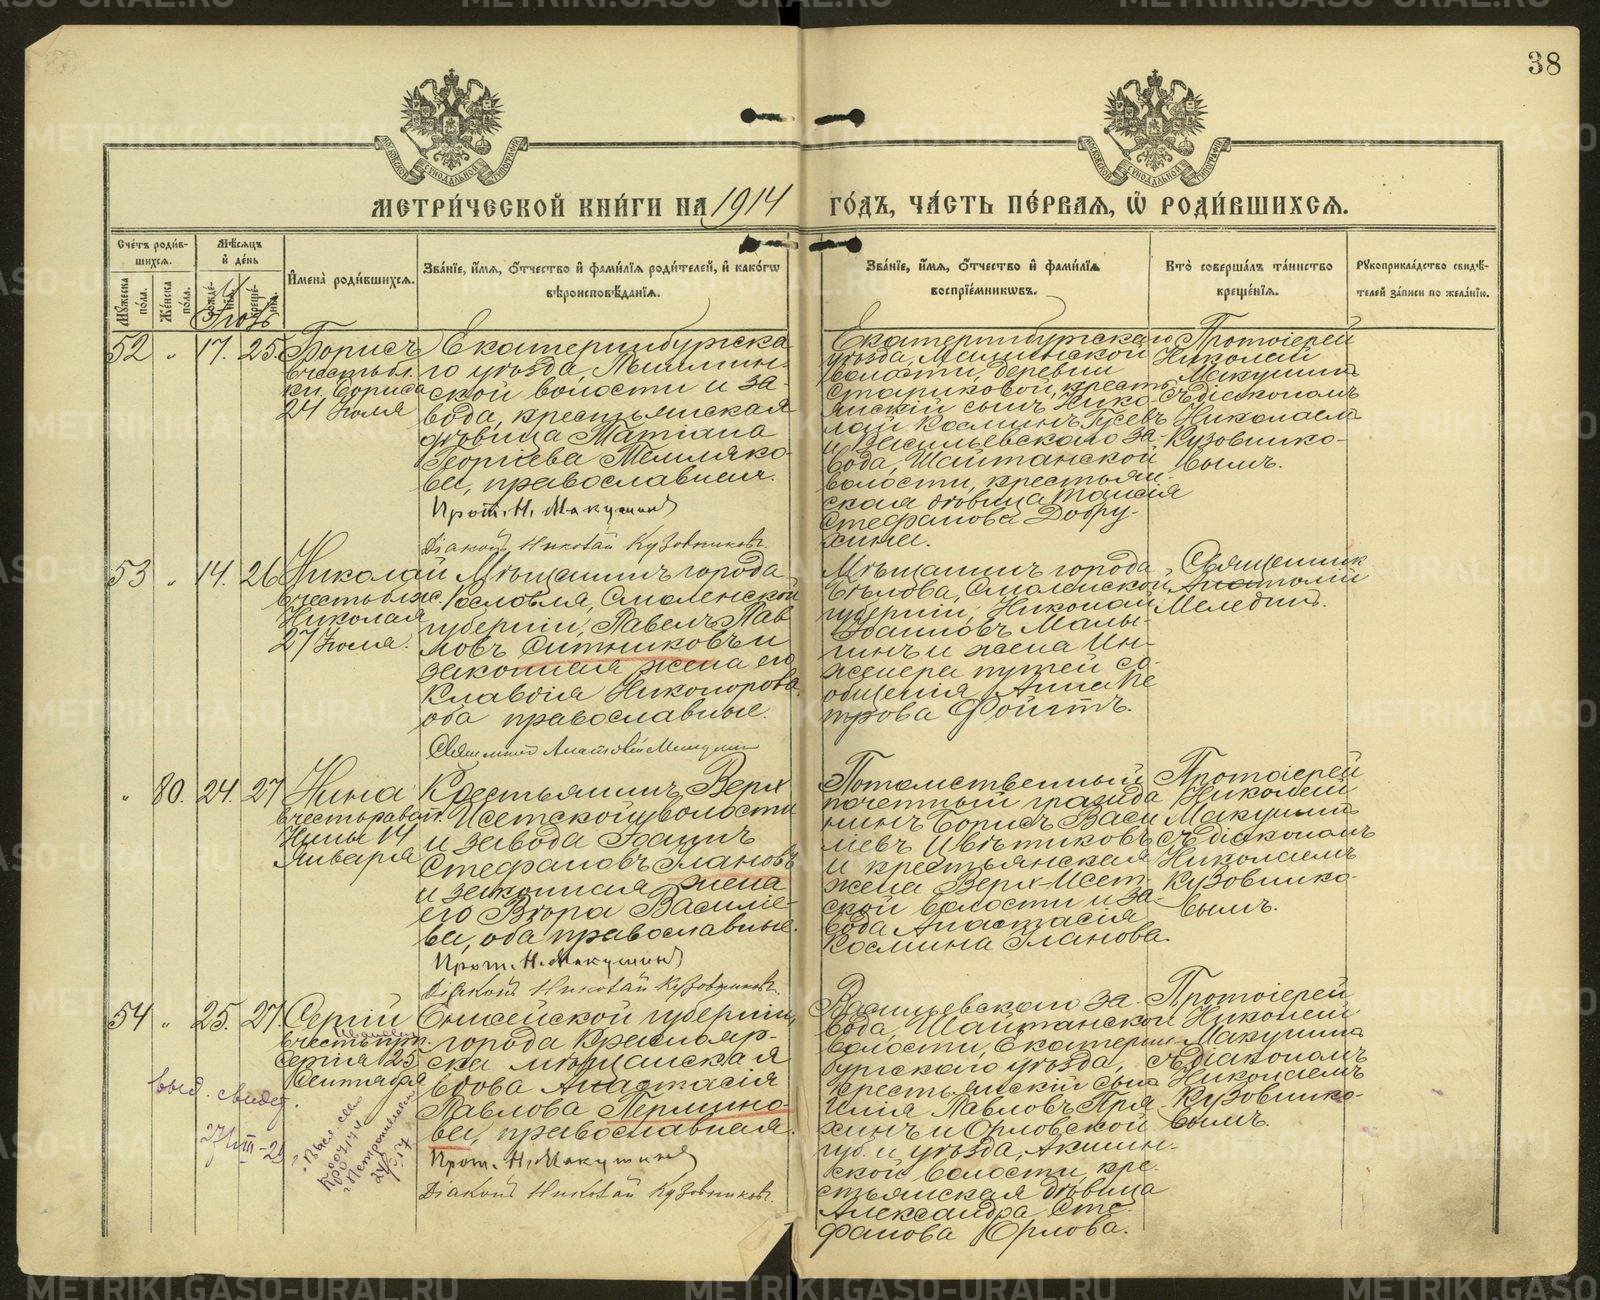 38
МЕТРИЧЕСКОЙ КНИГИ НА 1914 ГОДЪ, ЧАСТЬ ПЕРВАЯ, Ѡ РОДИВШИХСЯ.
Счетъ родив-
шихся.
Мужеска пола.
Женска пола.
Мѣсяцъ
и день
рожде-
нія.
креще-
нія.
Имена родившихся.
Званіе, имя, отчество и фамилія родителей, и какогѡ
вѣроисповѣданія.
Званіе, имя, отчество и фамилія
воспріемниковъ.
Кто совершалъ таинство
крещенія.
Рукоприкладство свидѣ-
телей записи по желанію.
Іюль
52 " 17. 25.
Борисъ
въ честь бл.
кн. Бориса
24 Іюля
Екатеринбургска
го уѣзда,
ской волости и за-
вода, крестьянская
дѣвица Татіана
Георгіева Темляко-
ва, православная.
Прот. Н. Макушинъ
Діаконъ Николай Кузовниковъ
Екатеринбургскаго
уѣзда,
волости, деревни
Стариковой, кресть-
янскій сынъ Нико-
лай Косминъ Гусевъ
и Васильевскаго за-
вода, Шайтанской
волости, крестьян-
ская дѣвица Таисія
Стефанова Добру-
хина.
Протоіерей
Николай
Макушинъ
съ діакономъ
Николаемъ
Кузовнико-
вымъ.
53 " 14. 26
Николай
въ честь
Николая
27 Іюля.
Мѣщанинъ города
Рославля, Смоленской
губерніи, Павелъ Пав
ловъ Ситниковъ и
законная жена его
Клавдія Никонорова
оба православные.
Священникъ Анатолій
Мѣщанинъ города
Бѣлова, Смоленской
губерніи, Николай
Іоанновъ Малы-
гинъ и жена Ин-
женера путей со-
общенія Анна Пе
трова Фойгтъ.
Священник
Анатолій
" 80. 24. 27
Нина
въ честь равноап.
Нины 14
Января
Крестьянинъ Верх
Исетской волости
и завода Іоаннъ
Стефановъ Глановъ
и законная жена
его Вѣра Василіе-
ва, оба православные.
Прот. Н. Макушинъ
Діаконъ Николай Кузовниковъ.
Потомственный
почетный гражда
нинъ Борисъ Васи
ліевъ Цвѣтиковъ
и крестьянская
жена Верх-Исет-
ской волости и за-
вода Анастасія
Космина Гланова.
Протоіерей
Николай
Макушинъ
съ діакономъ
Николаемъ
Кузовнико-
вымъ.
54 " 25. 27.
Сергій
въ честь прп.
Сергія 25
Сентября
Енисейской губерніи,
города Краснояр-
ска мѣщанская
вдова Анастасія
Павлова Пермино-
ва, православная.
Прот. Н. Макушинъ
Діаконъ Николай Кузовниковъ.
выд. свидет.
27/VIII-29
Васильевскаго за-
вода, Шайтанской
волости, Екатерин-
бургскаго уѣзда,
крестьянскій сынъ
Илія Павловъ Пря
хинъ и Орловской
губ. и уѣзда,
ской волости, кре-
стьянская дѣвица
Александра Сте-
фанова Орлова.
Протоіерей
Николай
Макушинъ
съ діакономъ
Николаемъ
Кузовнико-
вымъ.
METRIKI.GASO-URAL.RU